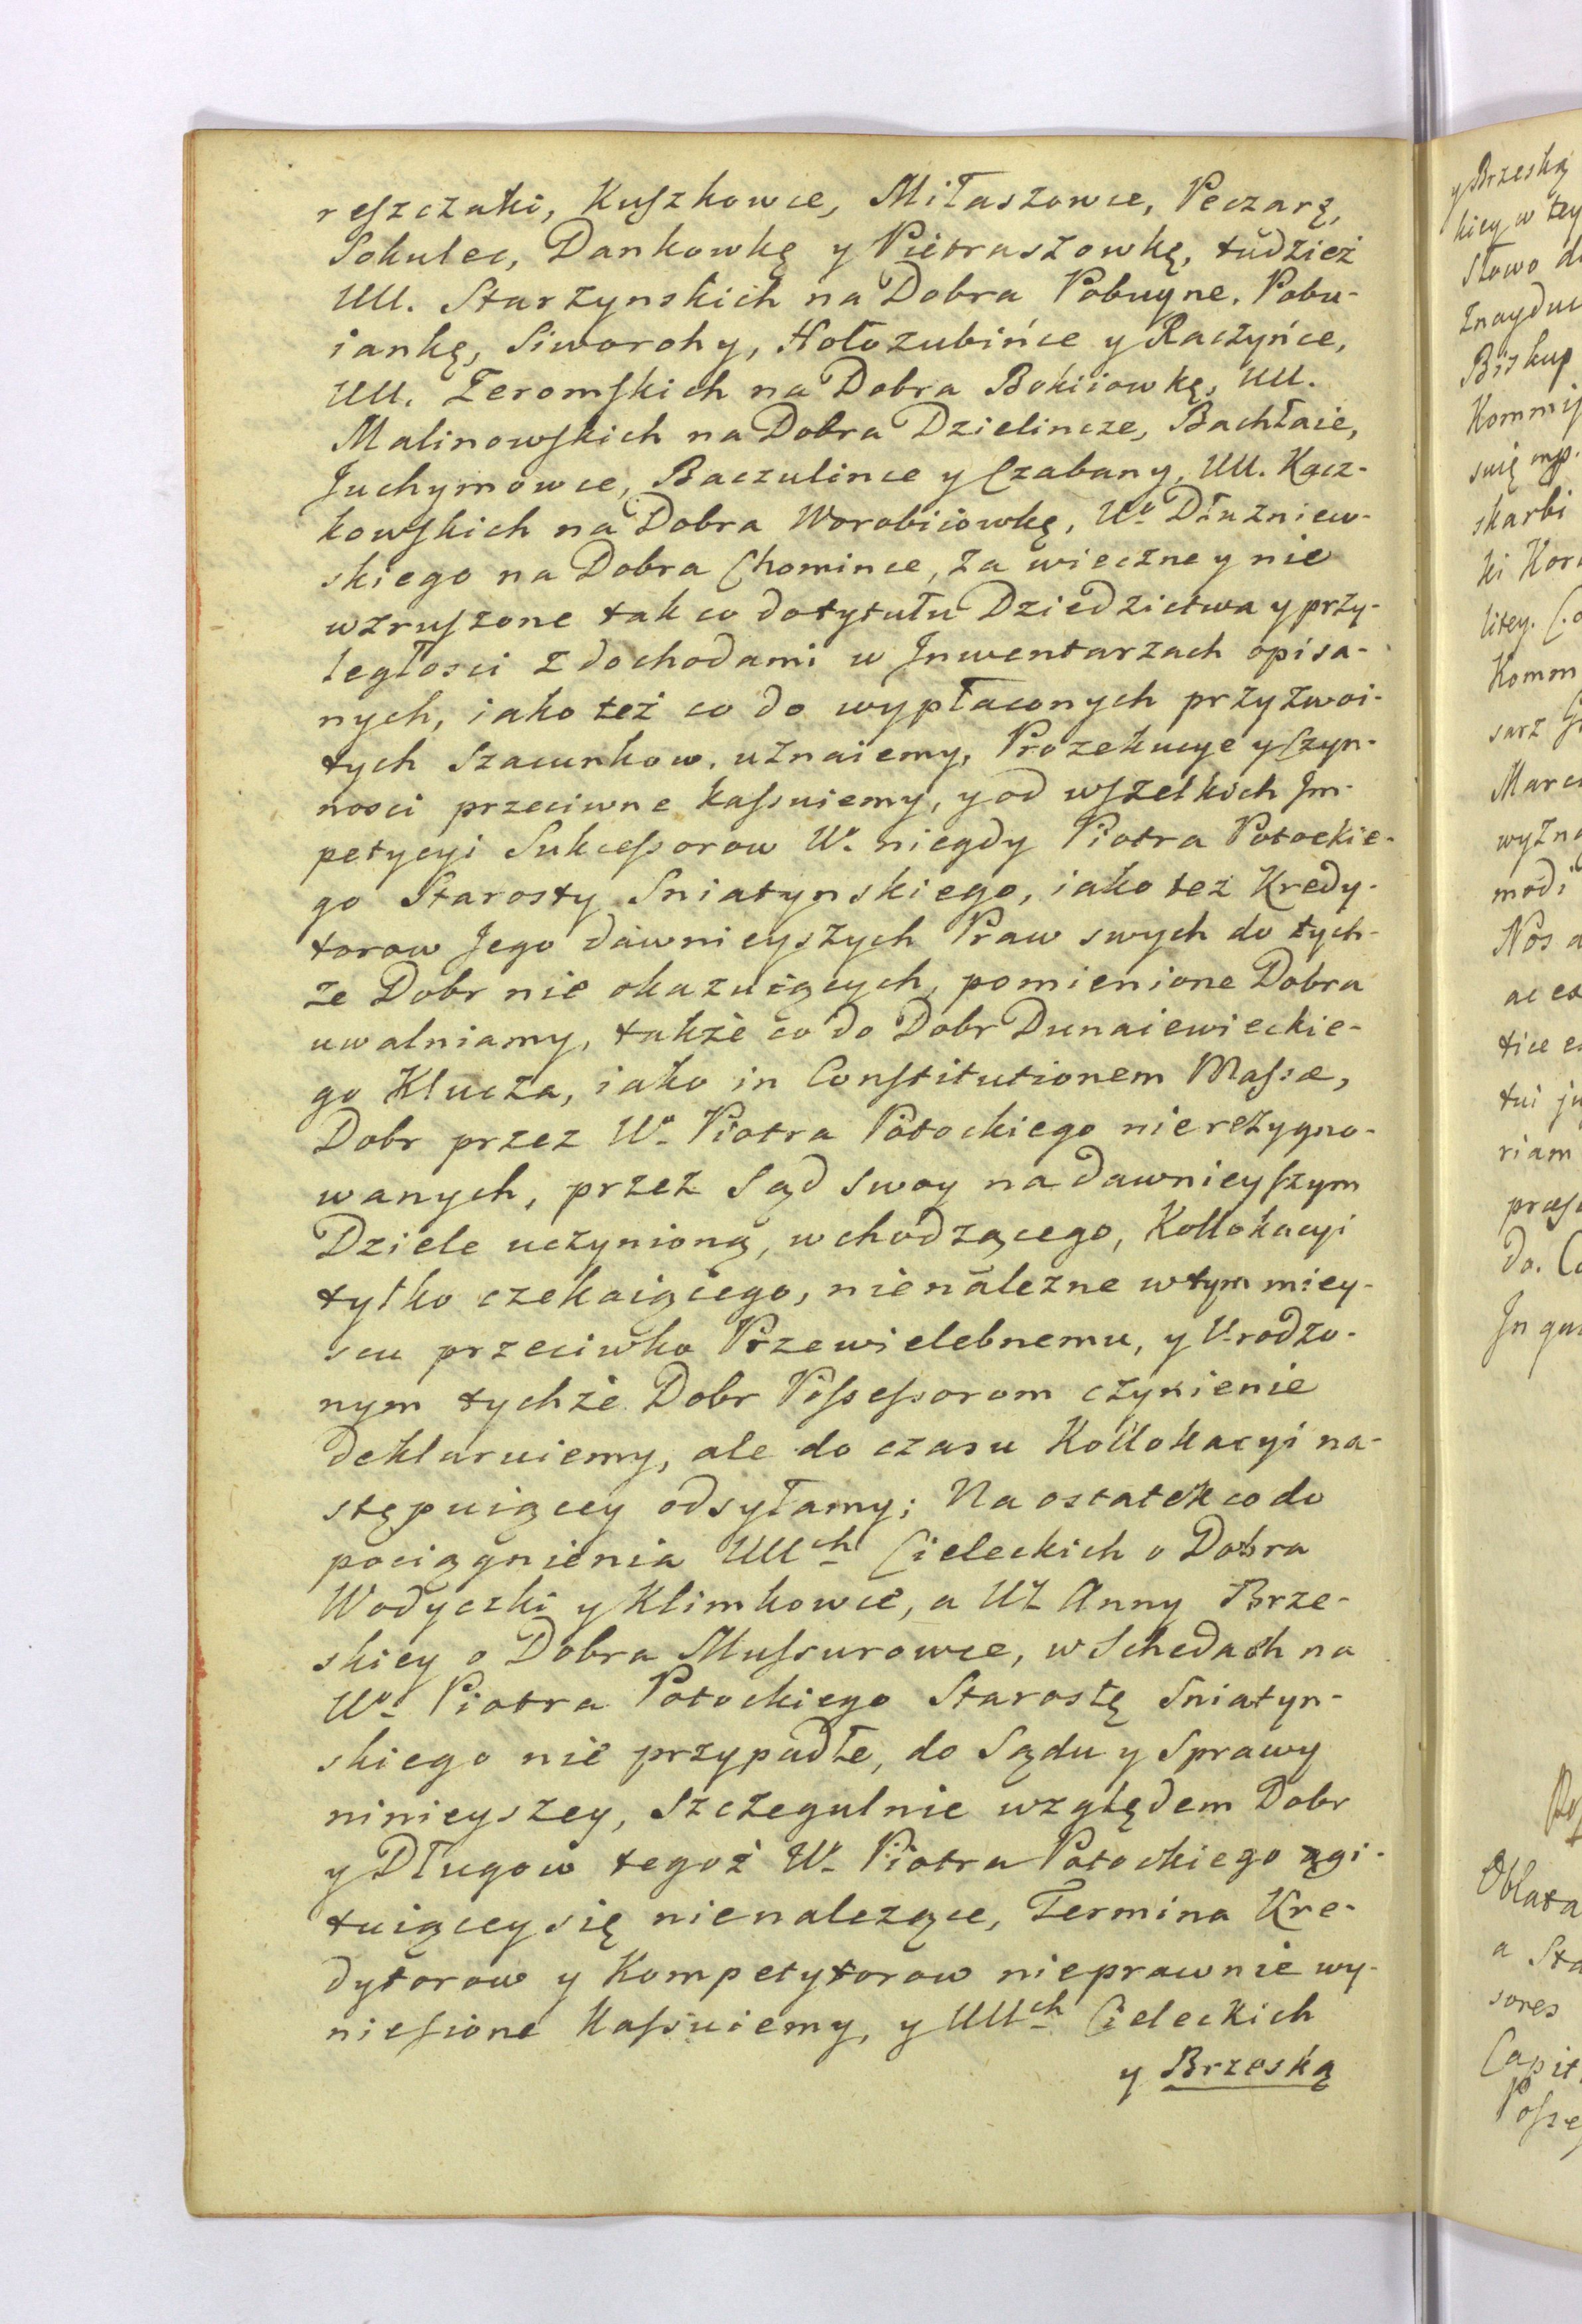 reszczaki, Kuszkowce, Miłaszowce, Peczarę,
Sokulec, Dankowkę y Pietraszowkę, tudzież
UU. Starzynskich na Dobra Pobuyne, Pobu-
iankę, Siworohy, Hołozubińce y Raczyńce,
UU. Zeromskich na Dobra Bokiiowkę, UU.
Malinowskich na Dobra Dzielincze, Bachłaie,
Juchymowce, Baczulince y Czabany, UU. Kącz-
kowskich na Dobra Worobiiowkę, Uo Dłużniew-
skiego na Dobra Chomince, za wieczne y nie
wzruszone tak co do tytułu Dziedzictwa y przy-
ległosci z dochodami w Jnwentarzach opisa-
nych, iako też co do wypłaconych przyzwoi-
tych szacunkow, uznaiemy, Prozekucye y Czyn-
nosci przeciwne kassuiemy, y od wszelkich Jm-
petycyi Sukcessorow Wo niegdy Piotra Potockie-
go Starosty Sniatynskiego, iako też Kredy-
torow Jego dawnieyszych Praw swych do tych-
że Dobr nie okazuiących, pomienione Dobra
uwalniamy, także co do Dobr Dunaiewieckie-
go Klucza, iako in Constitutionem Massæ,
Dobr przez Wo Piotra Potockiego nierezygno-
wanych, przez Sąd swoy na dawnieyszym
Dziele uczynioną, wchodzącego, Kollokacyi
tylko czekaiącego, nienależne w tym miey-
scu przeciwko Przewielebnemu, y Urodzo-
nym tychże Dobr Possessorom czynienie
deklaruiemy, ale do czasu Kollokacyi na-
stępuiącey odsyłamy; Na ostatek co do
pociągnienia UUch Cieleckich o Dobra
Wodyczki y Klimkowce, a UZ Anny Brze-
skiey o Dobra Mussurowce, w Schedach na
Wo Piotra Potockiego Starostę Sniatyn-
skiego nie przypadłe, do Sądu y Sprawy
ninieyszey, szczegulnie względem Dobr
y Długow tegoż Wo Piotra Potockiego agi-
tuiącey się nienalezące, Termina Kre-
dytorow y Kompetytorow nieprawnie wy-
niesione kassuiemy, y UUch Cieleckich
y Brzeską
y Brzeską
kiey w tey
Słowo
Znaydu
Biskup
skarbi
Komm
sarz
Nos
riam
do.
Oblata
a
sores
Capit